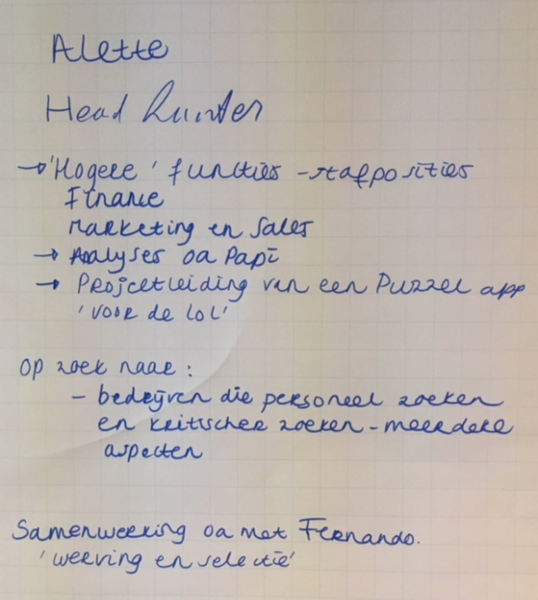 Alette
Head Hunter
→ 'Hogere' functies - stafposities
Finance
Marketing en Sales
→ Analyses oa Papi
→ Projectleiding van een Puzzel app
'voor de lol'
op zoek naar:
- bedrijven die personeel zoeken
en kritischer zoeken - meerdere
aspecten
Samenwerking oa met Fernando.
'werving en selectie'